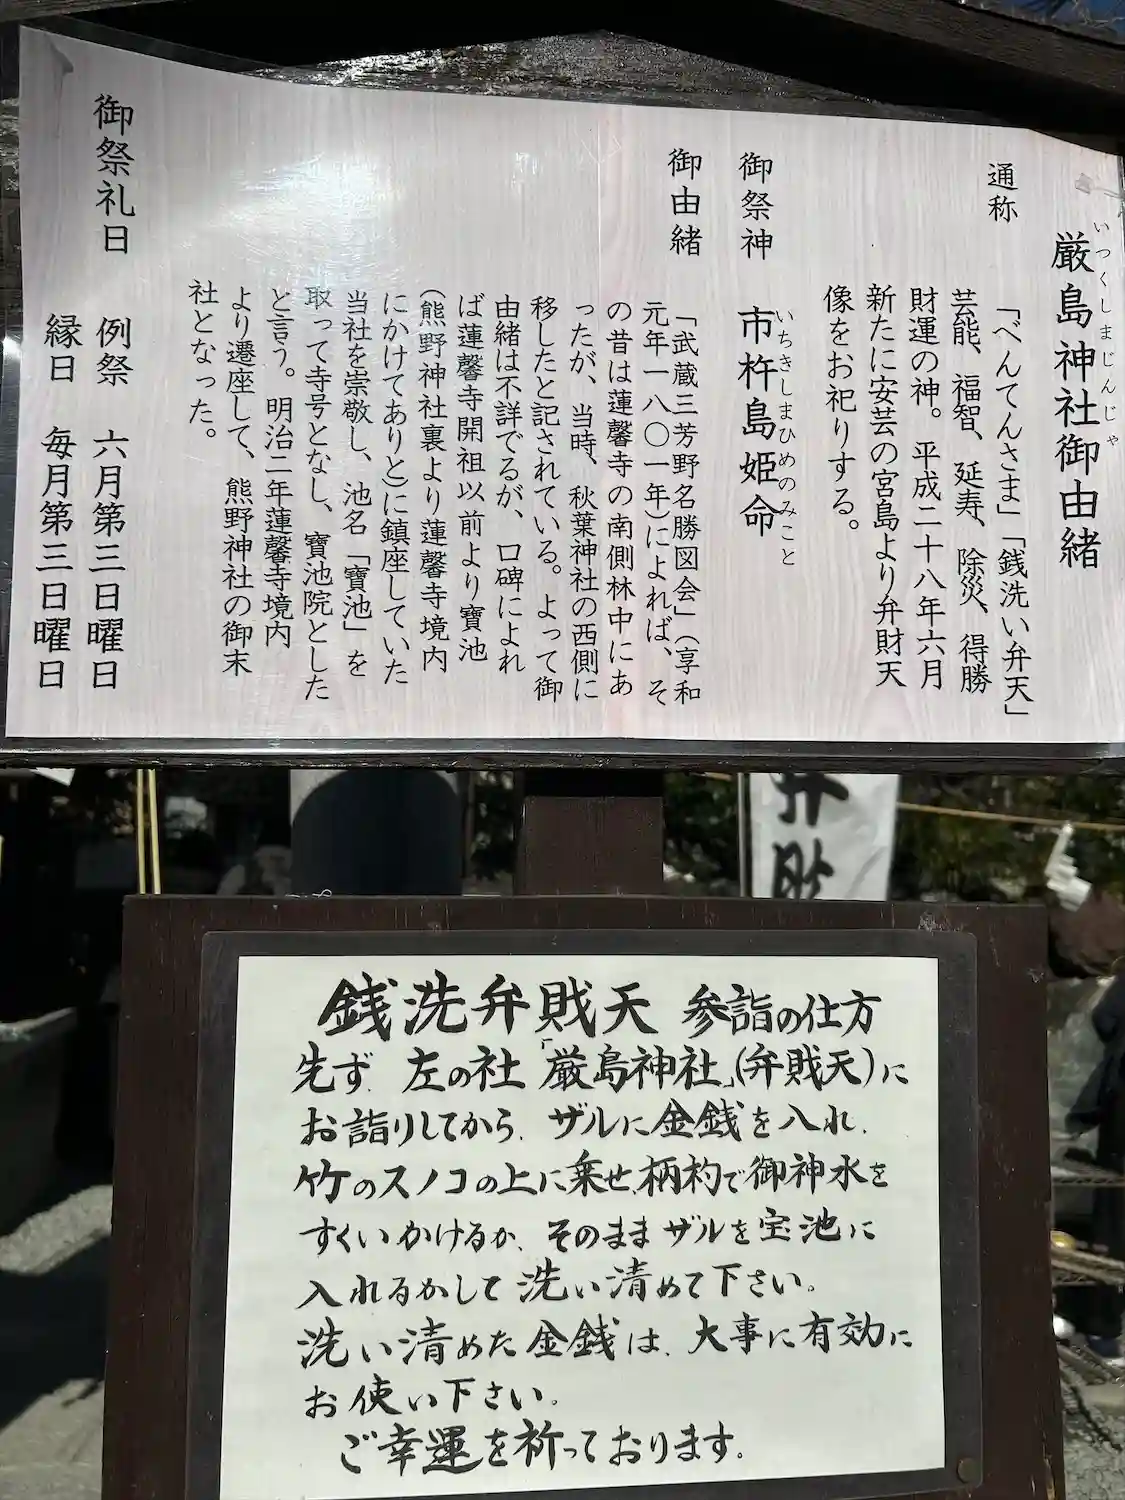 厳島神社御由緒
いつくしまじんじゃ
通称
「べんてんさま」「銭洗い弁天」
芸能、福智、延寿、除災、得勝
財運の神。平成二十八年六月
新たに安芸の宮島より弁財天
像をお祀りする。
御祭神
市杵島姫命
いちきしまひめのみこと
御由緒
「武蔵三芳野名勝図会」(享和
元年一八〇一年)によれば、そ
の昔は蓮馨寺の南側林中にあ
ったが、当時、秋葉神社の西側に
移したと記されている。よって御
由緒は不詳でるが、口碑によれ
ば蓮馨寺開祖以前より寶池
(熊野神社裏より蓮馨寺境内
にかけてありと)に鎮座していた
当社を崇敬し、池名「寶池」を
取って寺号となし、寶池院とした
と言う。明治二年蓮馨寺境内
より遷座して、熊野神社の御末
社となった。
御祭礼日
例祭 六月第三日曜日
縁日 毎月第三日曜日
弁財
銭洗弁財天 参詣の仕方
先ず、左の社「厳島神社」(弁財天)に
お詣りしてから、ザルに金銭を入れ、
竹のスノコの上に乗せ、柄杓で御神水を
すくいかけるか、そのままザルを宝池に
入れるかして洗い清めて下さい。
洗い清めた金銭は、大事に有効に
お使い下さい。
ご幸運を祈っております。